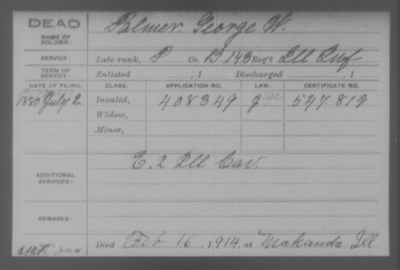 DEAD
NAME OF SOLDIER: Palmer George W.
SERVICE: Late rank, P Co. B 143 Reg't Ill Inf
TERM OF SERVICE: Enlisted , 1 Discharged , 1
DATE OF FILING. CLASS. APPLICATION NO. LAW. CERTIFICATE NO.
July 2 Invalid, 408349 547819
Widow,
Minor,
ADDITIONAL SERVICES: E. 2 Ill Cav.
REMARKS:
Died Feb 16, 1914, at Makanda Ill